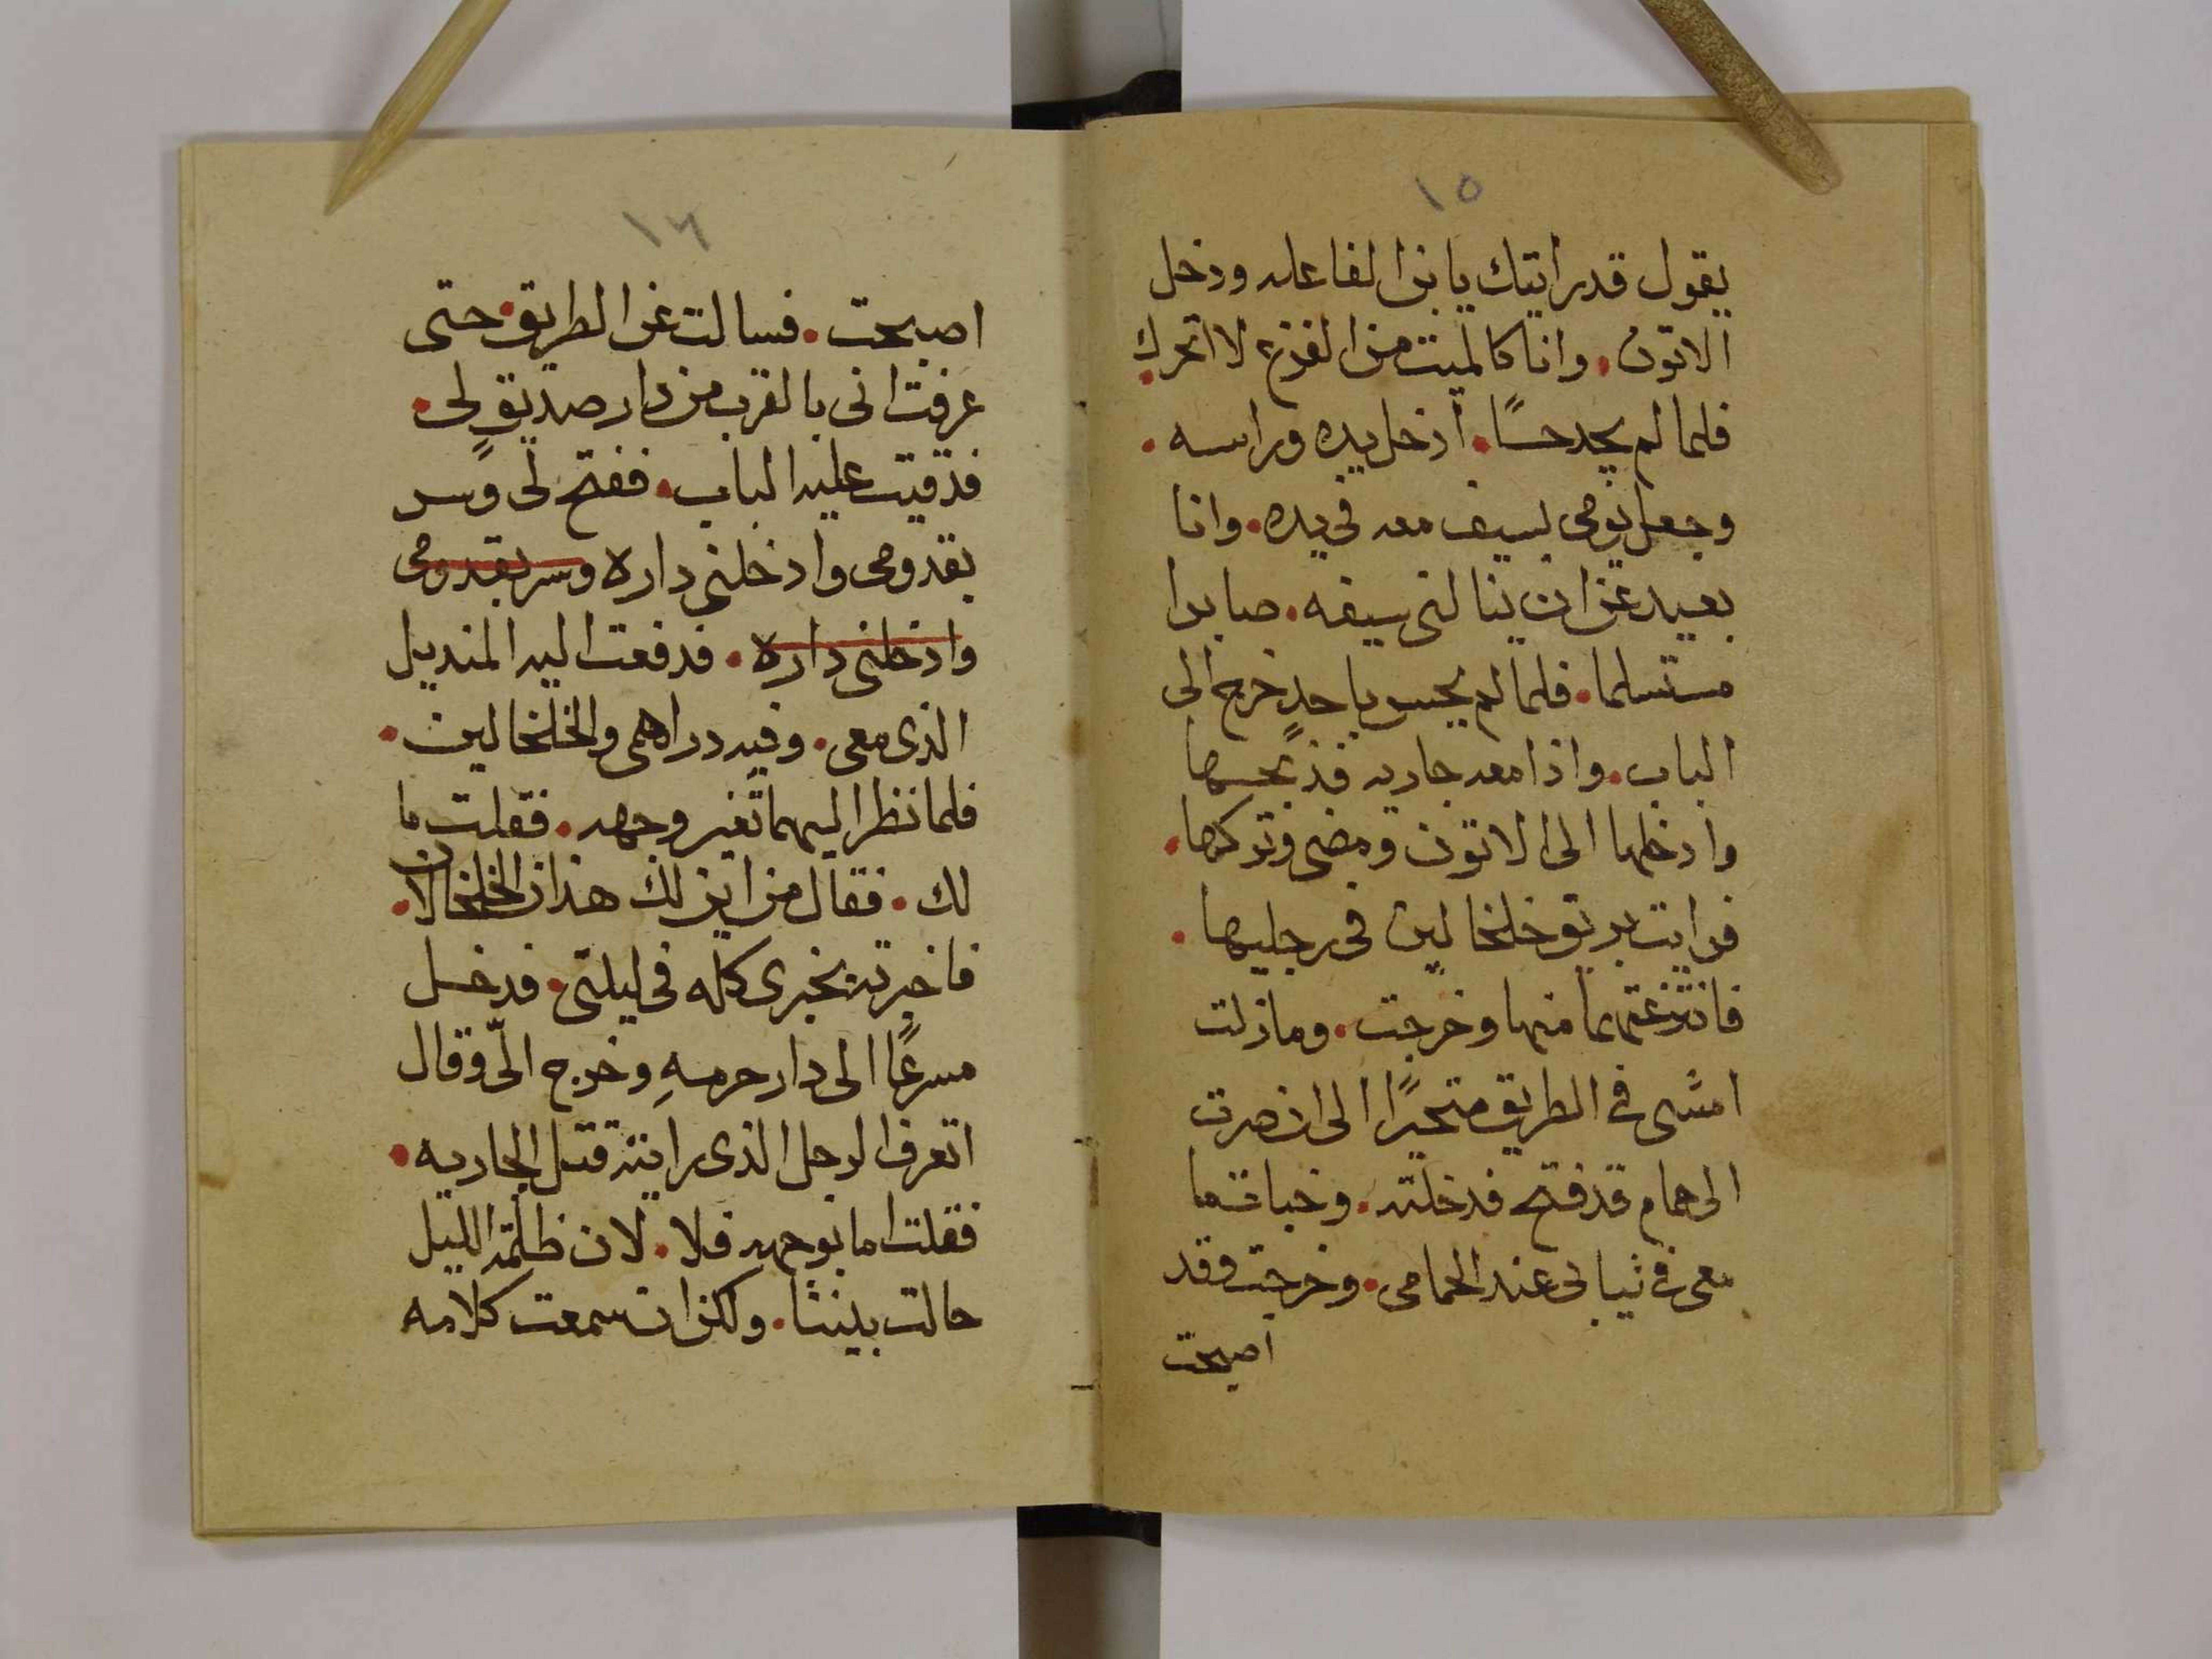 ١٥
يقول قد رايتك يا بن الفاعله ودخل
الاتون. وانا كالميت من الفزع لا اتحرك.
فلما لم يجد حسًا. ادخل يده وراسه.
وجعل يومى بسيف معه فى يده. وانا
بعيد عن ان ينالنى سيفه. صابرا
مستسلما. فلما لم يحس باحدٍ خرج الى
الباب. واذا معه جاريه فذبحها
وادخلها الى الاتون ومضى وتركها.
فرايت بريق خلخالين فى رجليها.
فانتزعتهما منها وخرجت. ومازلت
امشى فى الطريق متحيرًا الى ان صرت
الى حمام قد فتح فدخلته. وخبات ما
معى فى ثيابى عند الحمامى. وخرجت وقد
اصبحت
١٦
اصبحت. فسالت عن الطريق. حتى
عرفت انى بالقرب من دار صديقٍ لى.
فدقيت عليه الباب. ففتح لى وسر
بقدومى وادخلنى داره وسر بقدومى
وادخلنى داره. فدفعت اليه المنديل
الذى معى. وفيه دراهمى والخلخالين.
فلما نظر اليهما تغير وجهه. فقلت ما
لك. فقال من اين لك هذان الخلخالان.
فاخبرته بخبرى كله فى ليلتى. فدخل
مسرعًا الى دار حرمهِ وخرج الىّ وقال
اتعرف الرجل الذى رايته قتل الجاريه.
فقلت اما بوجهه فلا. لان ظلمة الليل
حالت بيننا. ولكن ان سمعت كلامه